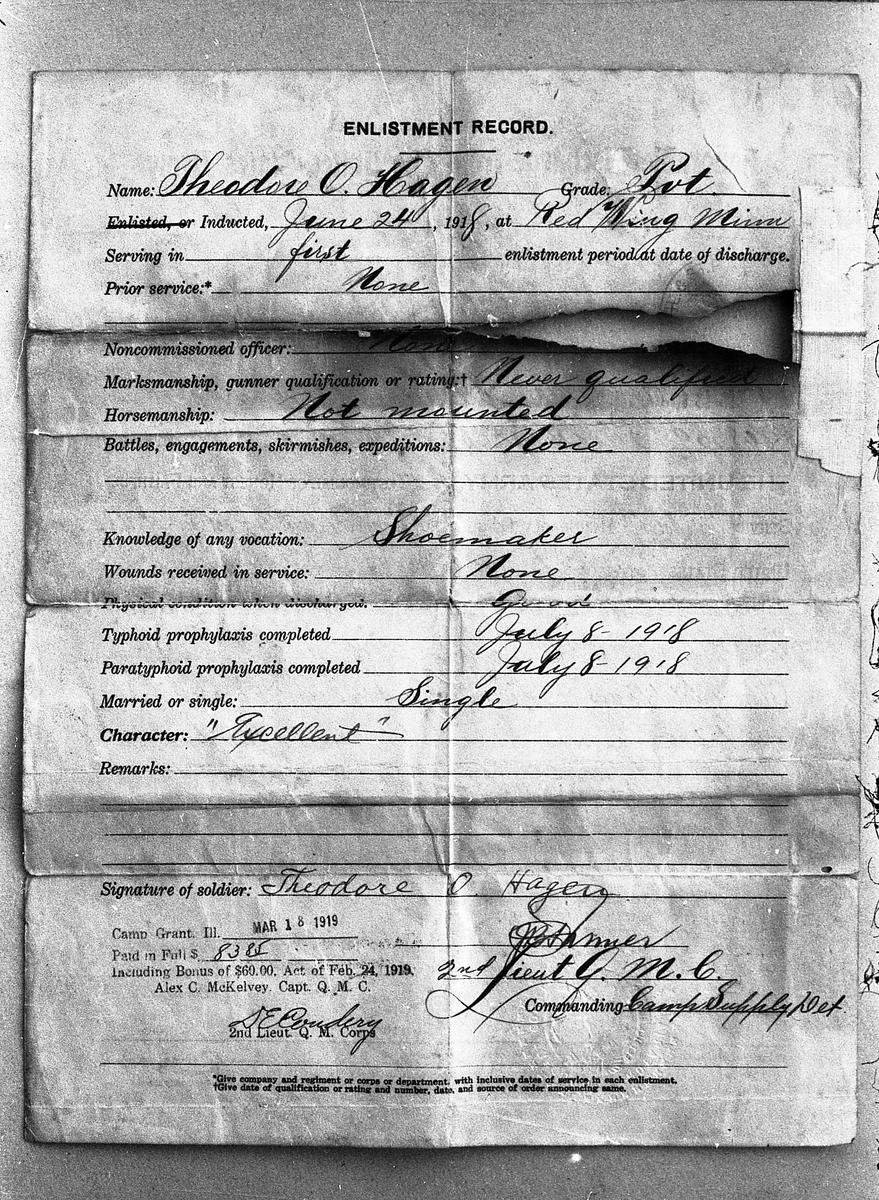 ENLISTMENT RECORD.
Name: Theodore O. Hagen Grade: Pvt.
Enlisted, or Inducted, June 24, 1918, at Red Wing Minn
Serving in first enlistment period at date of discharge.
Prior service:* None
Noncommissioned officer: None
Marksmanship, gunner qualification or rating:† Never qualified
Horsemanship: Not mounted
Battles, engagements, skirmishes, expeditions: None
Knowledge of any vocation: Shoemaker
Wounds received in service: None
Physical condition when discharged: Good
Typhoid prophylaxis completed July 8-1918
Paratyphoid prophylaxis completed July 8-1918
Married or single: Single
Character: "Excellent"
Remarks:
Signature of soldier: Theodore O. Hagen
Camp Grant, Ill. MAR 18 1919
Paid in Full $ 83 85
Including Bonus of $60.00. Act of Feb. 24, 1919.
Alex C. McKelvey. Capt. Q. M. C.
2nd Lieut. Q. M. Corps
2nd Lieut Q. M. C.
Commanding Camp Supply Det.
*Give company and regiment or corps or department, with inclusive dates of service in each enlistment.
†Give date of qualification or rating and number, date, and source of order announcing same.